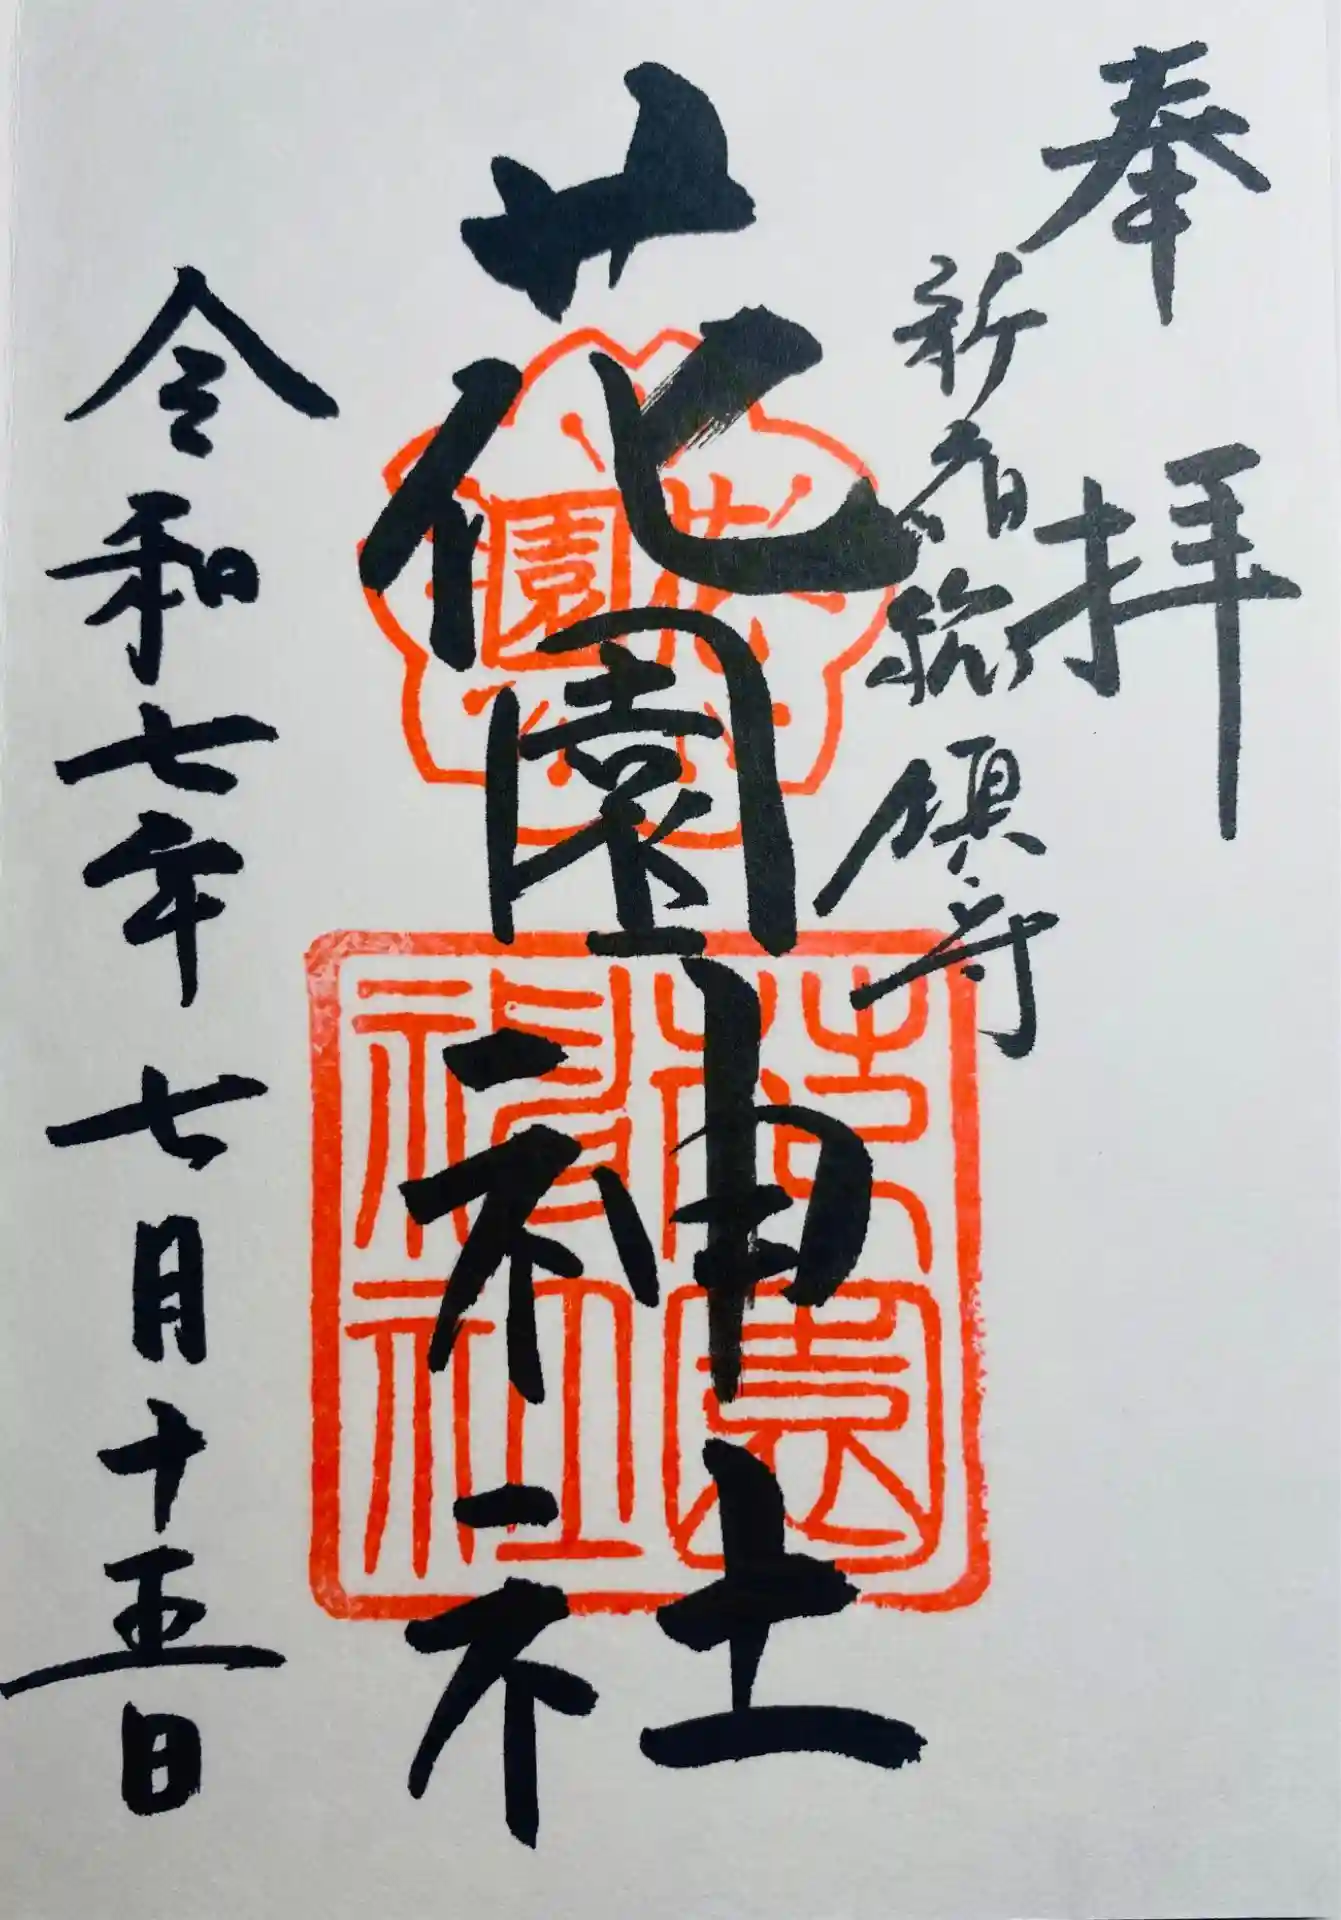 奉拝
新宿総鎮守
花園神社
花園神社
花園神社
令和七年七月十五日